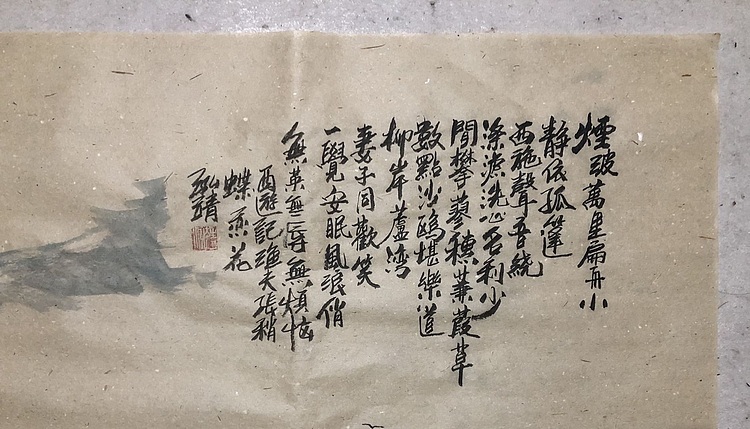 煙波萬里扁舟小
靜依孤篷
西施聲音繞
滌慮洗心名利少
閒攀蓼穗蒹葭草
數點沙鷗堪樂道
柳岸蘆灣
妻子同歡笑
一覺安眠風浪俏
無榮無辱無煩惱
西遊記漁夫張稍
蝶恋花
弘靖